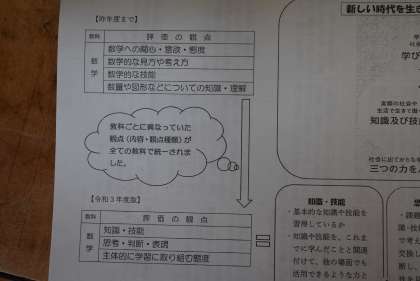 【昨年度まで】
教科 評価の観点
数学 数学への関心・意欲・態度
数学的な見方や考え方
数学的な技能
数量や図形などについての知識・理解
教科ごとに異なっていた
観点（内容・観点種類）が
全ての教科で統一されま
した。
【令和３年度版】
教科 評価の観点
数学 知識・技能
思考・判断・表現
主体的に学習に取り組む態度
新しい時代を生き
学び
実際の社会や
生活で生きて働
知識及び技
社会に出てからも
三つの力を
知識・技能
・基本的な知識や技能を
習得しているか
・知識や技能を、これま
でに学んだことと関連
付けて、他の場面でも
活用できるような力と